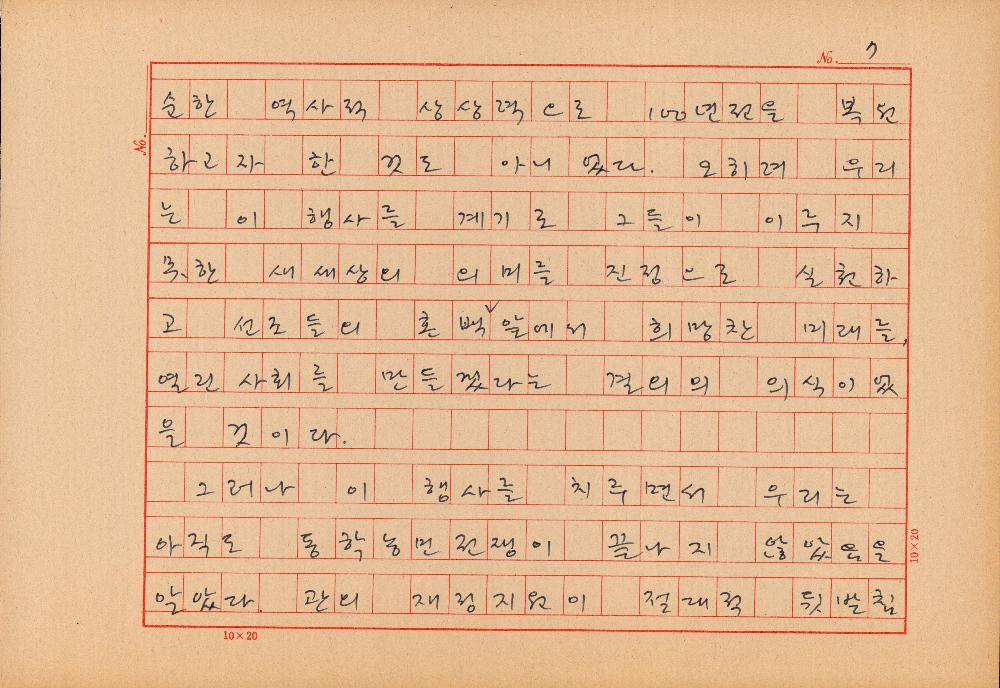 No. 7
순한 역사적 상상력으로 100년전을 복원
No.
하고자 한 것도 아니었다. 오히려 우리
는 이 행사를 계기로 그들이 이루지
못한 새세상의 의미를 진정으로 실현하
고 선조들의 혼백 앞에서 희망찬 미래를,
열린사회를 만들겠다라는 결의의 의식이었
을 것이다.
그러나 이 행사를 치루면서 우리는
아직도 동학농민전쟁이 끝나지 않았음을
알았다. 관의 재정지원이 절대적 뒷받침
10×20
10×20